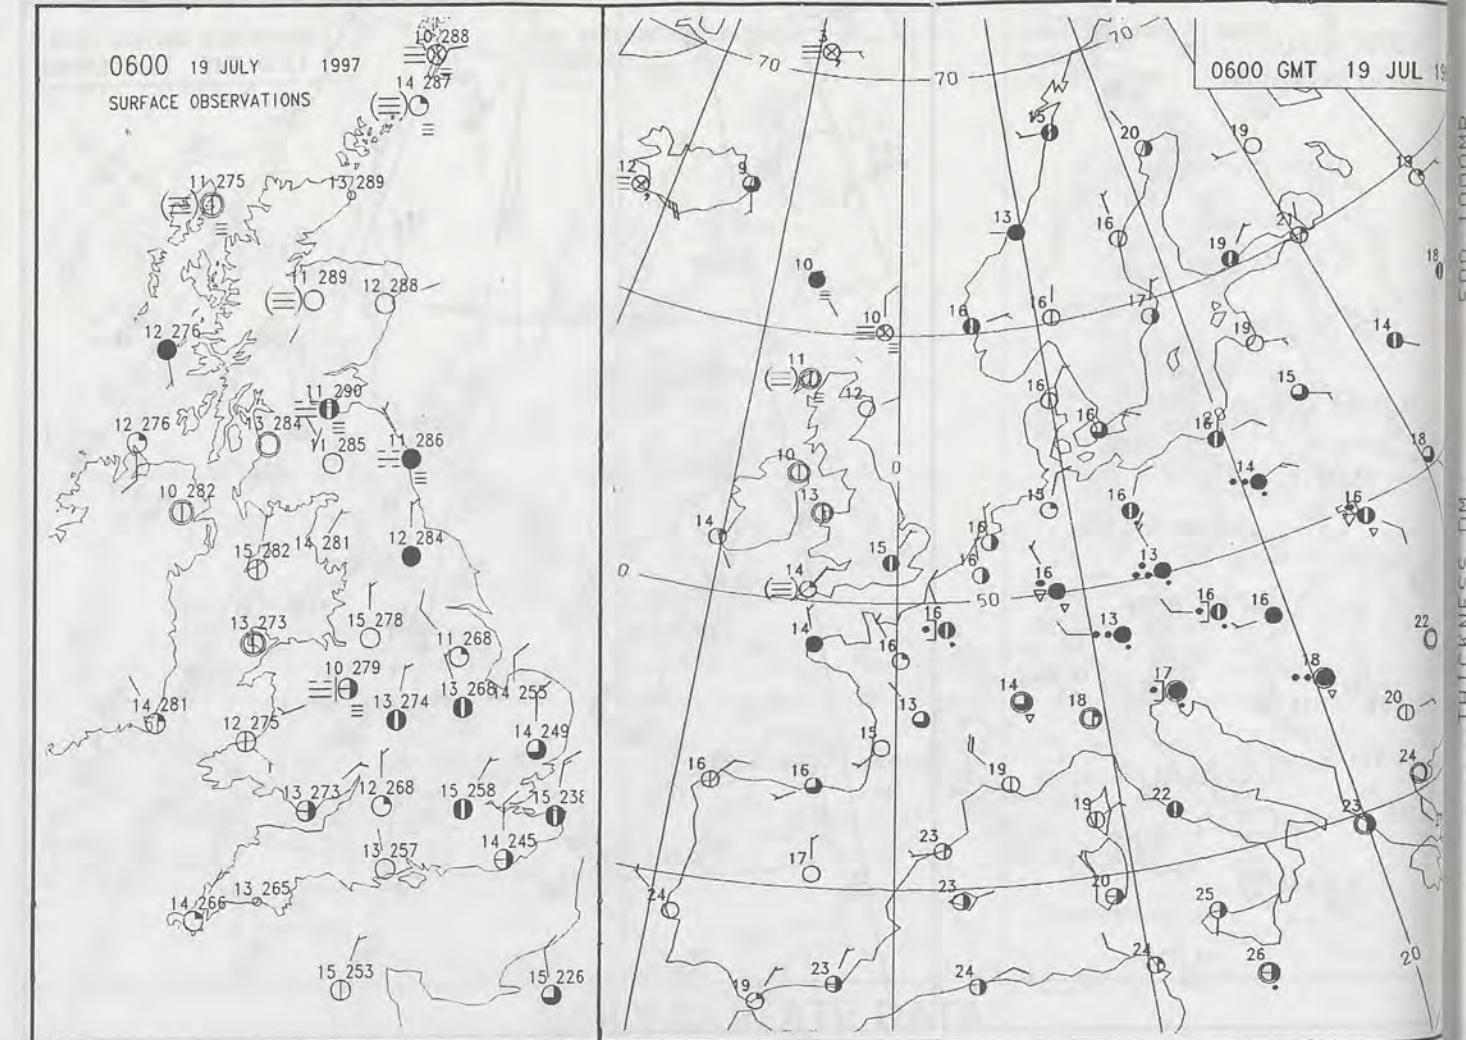 0600 19 JULY 1997
SURFACE OBSERVATIONS
10 288
14 287
11 275
13 289
11 289
12 288
12 276
11 290
12 276
13 284
11 286
285
10 282
15 282
14 281
12 284
13 273
15 278
11 268
10 279
13 274
13 268
14 255
14 281
12 275
14 249
13 273
12 268
15 258
15 238
14 245
13 257
14 266
13 265
15 253
15 226
0600 GMT 19 JUL 19
3
70
70
70
15
20
19
12
9
13
16
21
19
18
10
10
16
16
17
19
14
11
12
16
16
15
16
18
0
10
13
14
14
15
16
16
16
15
16
13
16
0
14
50
16
16
13
16
16
22
14
16
17
18
13
14
18
20
15
16
16
19
24
19
22
23
23
17
24
23
20
25
19
23
24
24
26
20
500-1000MB
THICKNESS DM